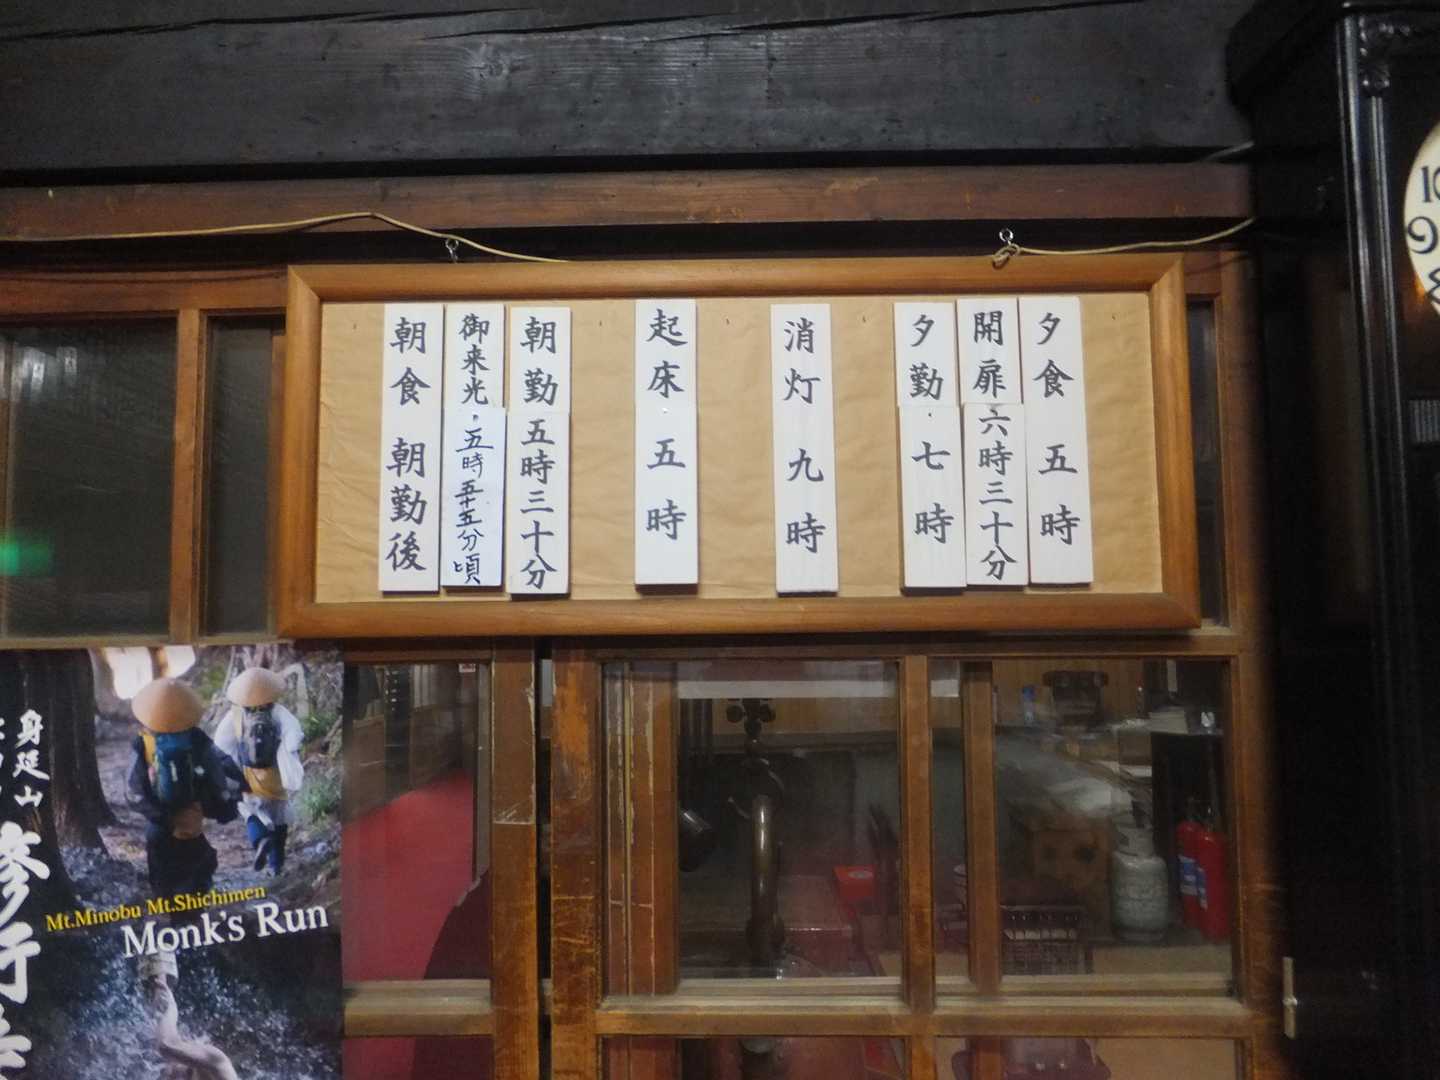 夕食 五時
開扉 六時三十分
夕勤 七時
消灯 九時
起床 五時
朝勤 五時三十分
御来光 五時五十五分頃
朝食 朝勤後
身延山
修行
Mt.Minobu Mt.Shichimen
Monk's Run
10
9
8